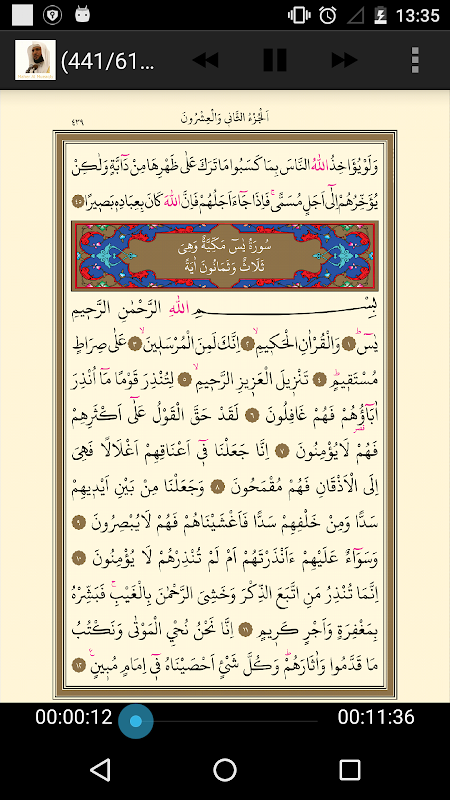 13:35
(441/61...
اَلْجُزْءُ الثَّانِي وَالْعِشْرُونَ
٤٣٩
وَلَوْ يُؤَاخِذُ اللّٰهُ النَّاسَ بِمَا كَسَبُوا مَا تَرَكَ عَلٰى ظَهْرِهَا مِنْ دَٓابَّةٍ وَلٰكِنْ
يُؤَخِّرُهُمْ اِلٰٓى اَجَلٍ مُسَمًّىۚ فَاِذَا جَٓاءَ اَجَلُهُمْ فَاِنَّ اللّٰهَ كَانَ بِعِبَادِه۪ بَص۪يرًا ٤٥
سُورَةُ يٰسٓ مَكِّيَّةٌ وَهِيَ
ثَلَاثٌ وَثَمَانُونَ اٰيَةً
بِسْمِ اللّٰهِ الرَّحْمٰنِ الرَّح۪يمِ
يٰسٓۚ ١ وَالْقُرْاٰنِ الْحَك۪يمِۙ ٢ اِنَّكَ لَمِنَ الْمُرْسَل۪ينَۙ ٣ عَلٰى صِرَاطٍ
مُسْتَق۪يمٍۜ ٤ تَنْز۪يلَ الْعَز۪يزِ الرَّح۪يمِۙ ٥ لِتُنْذِرَ قَوْمًا مَٓا اُنْذِرَ
اٰبَٓاؤُ۬هُمْ فَهُمْ غَافِلُونَ ٦ لَقَدْ حَقَّ الْقَوْلُ عَلٰٓى اَكْثَرِهِمْ
فَهُمْ لَا يُؤْمِنُونَ ٧ اِنَّا جَعَلْنَا ف۪ٓي اَعْنَاقِهِمْ اَغْلَالًا فَهِيَ
اِلَى الْاَذْقَانِ فَهُمْ مُقْمَحُونَ ٨ وَجَعَلْنَا مِنْ بَيْنِ اَيْد۪يهِمْ
سَدًّا وَمِنْ خَلْفِهِمْ سَدًّا فَاَغْشَيْنَاهُمْ فَهُمْ لَا يُبْصِرُونَ ٩
وَسَوَٓاءٌ عَلَيْهِمْ ءَاَنْذَرْتَهُمْ اَمْ لَمْ تُنْذِرْهُمْ لَا يُؤْمِنُونَ ١٠
اِنَّمَا تُنْذِرُ مَنِ اتَّبَعَ الذِّكْرَ وَخَشِيَ الرَّحْمٰنَ بِالْغَيْبِۚ فَبَشِّرْهُ
بِمَغْفِرَةٍ وَاَجْرٍ كَر۪يمٍ ١١ اِنَّا نَحْنُ نُحْيِ الْمَوْتٰى وَنَكْتُبُ
مَا قَدَّمُوا وَاٰثَارَهُمْۜ وَكُلَّ شَيْءٍ اَحْصَيْنَاهُ ف۪ٓي اِمَامٍ مُب۪ينٍ۟ ١٢
00:00:12
00:11:36